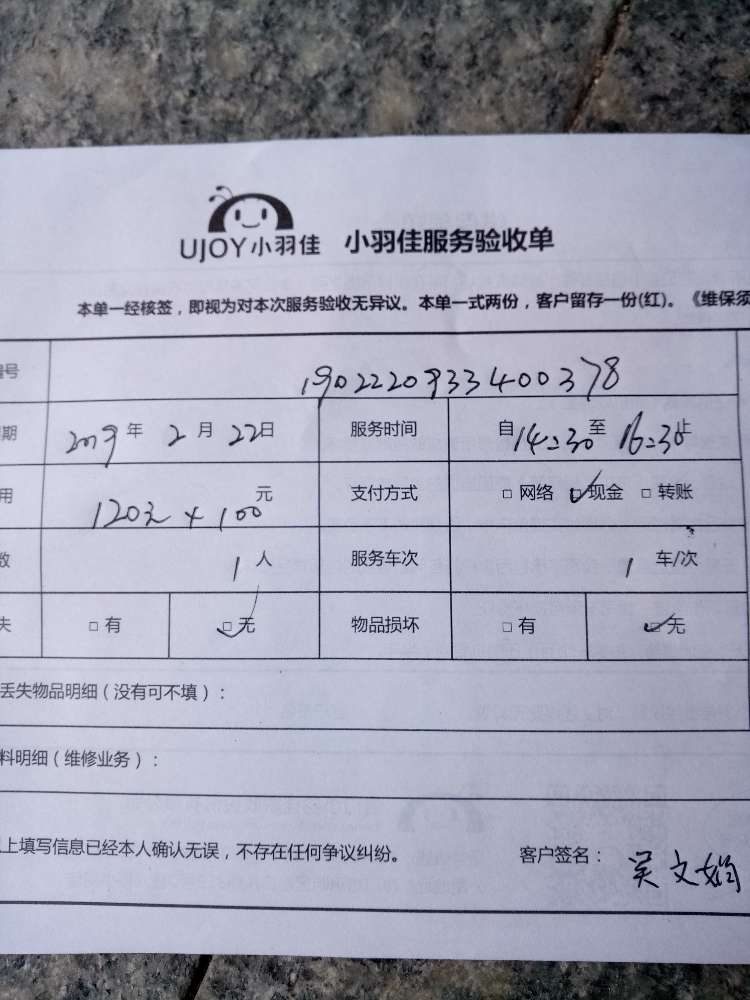 UJOY小羽佳 小羽佳服务验收单
本单一经核签，即视为对本次服务验收无异议。本单一式两份，客户留存一份(红)。《维保须
编号 19022209334400378
期 2019年 2月 22日 服务时间 自14:30至16:30止
用 120元+100元 支付方式 □网络 ☑现金 □转账
数 1人 服务车次 1车/次
失 □有 ☑无 物品损坏 □有 ☑无
丢失物品明细（没有可不填）：
料明细（维修业务）：
上填写信息已经本人确认无误，不存在任何争议纠纷。 客户签名：吴文娟